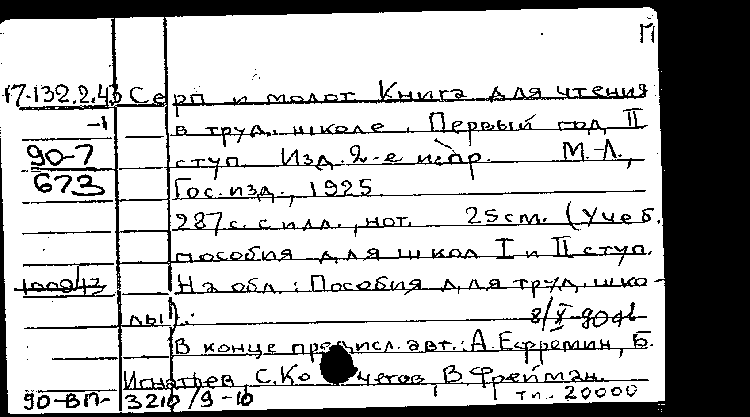 П
17-132.2.43 Серп и молот Книга для чтения
-1 в труд. школе. Первый год II
90-7 ступ. Изд. 2-е испр. М.-Л.,
673 Гос. изд., 1925.
287 с. с илл., нот. 25 см. (Учеб.
пособия для школ I и II ступ.
На обл.: Пособия для труд. шко-
лы).
8/X-90
В конце предисл. авт.: А. Ефремин, Б.
Игнатьев, С. Ко четов, В. Фрейман.
90-ВП- 3210/9-10 тп. 20000